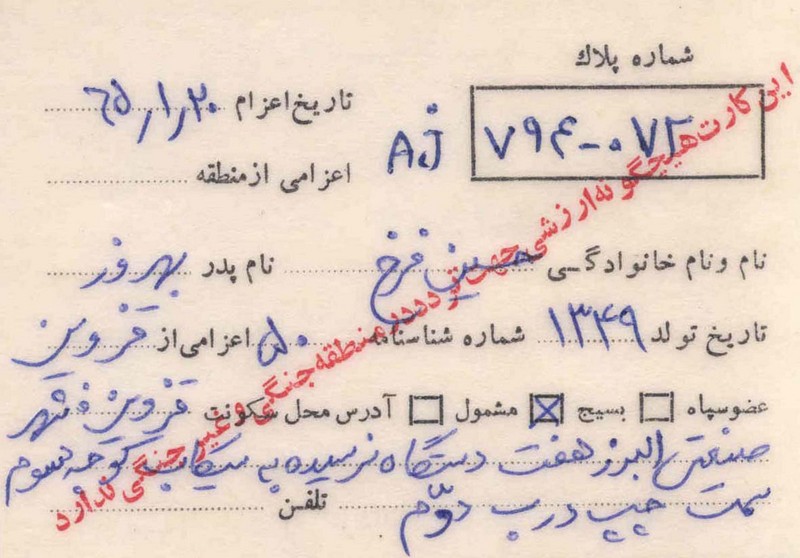 شماره پلاك
تاریخ اعزام ۶۵/۱/۲۰
A.J ۷۹۴-۰۷۲
اعزامی از منطقه
نام ونام خانوادگی حسین فرخ نام پدر بهروز
تاریخ تولد ۱۳۴۹ شماره شناسنامه ۵۰ اعزامی از قزوین
عضوسپاه بسیج مشمول آدرس محل سکونت قزوین شهر
صنعتی البرز هفت دستگاه نرسیده به میکاب کوچه سوم
سمت چپ درب دوّم تلفن
این کارت هیچگونه ارزشی جهت تردد در منطقه جنگی و غیر جنگی ندارد